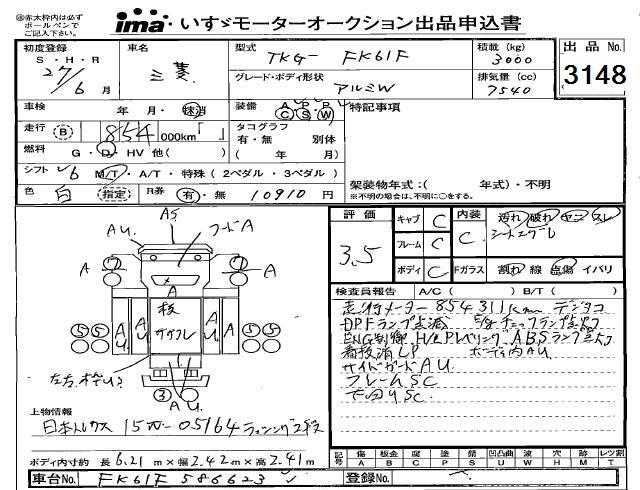 ※赤太枠内は必ず
ボールペンで
ご記入下さい。
ima いすゞモーターオークション出品申込書
初度登録 S・H・R 27/6 月
車名 三菱
型式 TKG- FK61F
積載(kg) 3000
出品No. 3148
グレード・ボディ形状 アルミW
排気量(cc) 7540
車検 年 月・速消
装備 A P P C S W
特記事項
走行 B 854 000km「 」
タコグラフ 有・無 別体
( 年 月)
燃料 G・D・HV 他( )
シフト 6 M/T・A/T・特殊(2ペダル・3ペダル)
架装物年式:( 年式)・不明
※不明の場合は、不明に○をする。
色 白 指定 R券 有・無 10910 円
評価 3.5
キャブ C 内装 C 汚れ 破れ ヤニ スレ
フレーム C シートエグレ
ボディ C Fガラス 割れ 線 点傷 イバリ
検査員報告 A/C( ) B/T( )
走行メーター 854311km デジタコ
DPFランプ点滅
ENG制御 H/Pレベリング ABSランプ点灯
着抜済LP ボディ内AU
サイドガードAU
フレームSC
下回りSC
A5
AU
フードA
A A
A
板
ササクレ
⑤⑤ AU AU ⑤⑤
③ AU
上物情報
日本トレクス 15 05164 ラッシング2段
ボディ内寸約 長 6.21 m × 幅 2.42 m × 高 2.41 m
記号 傷 板金 腐 塗 錆 凹凸曲 波 穴 跡 レツ割
A B C P S U W H M T
車台No. FK61F 586623
登録No.